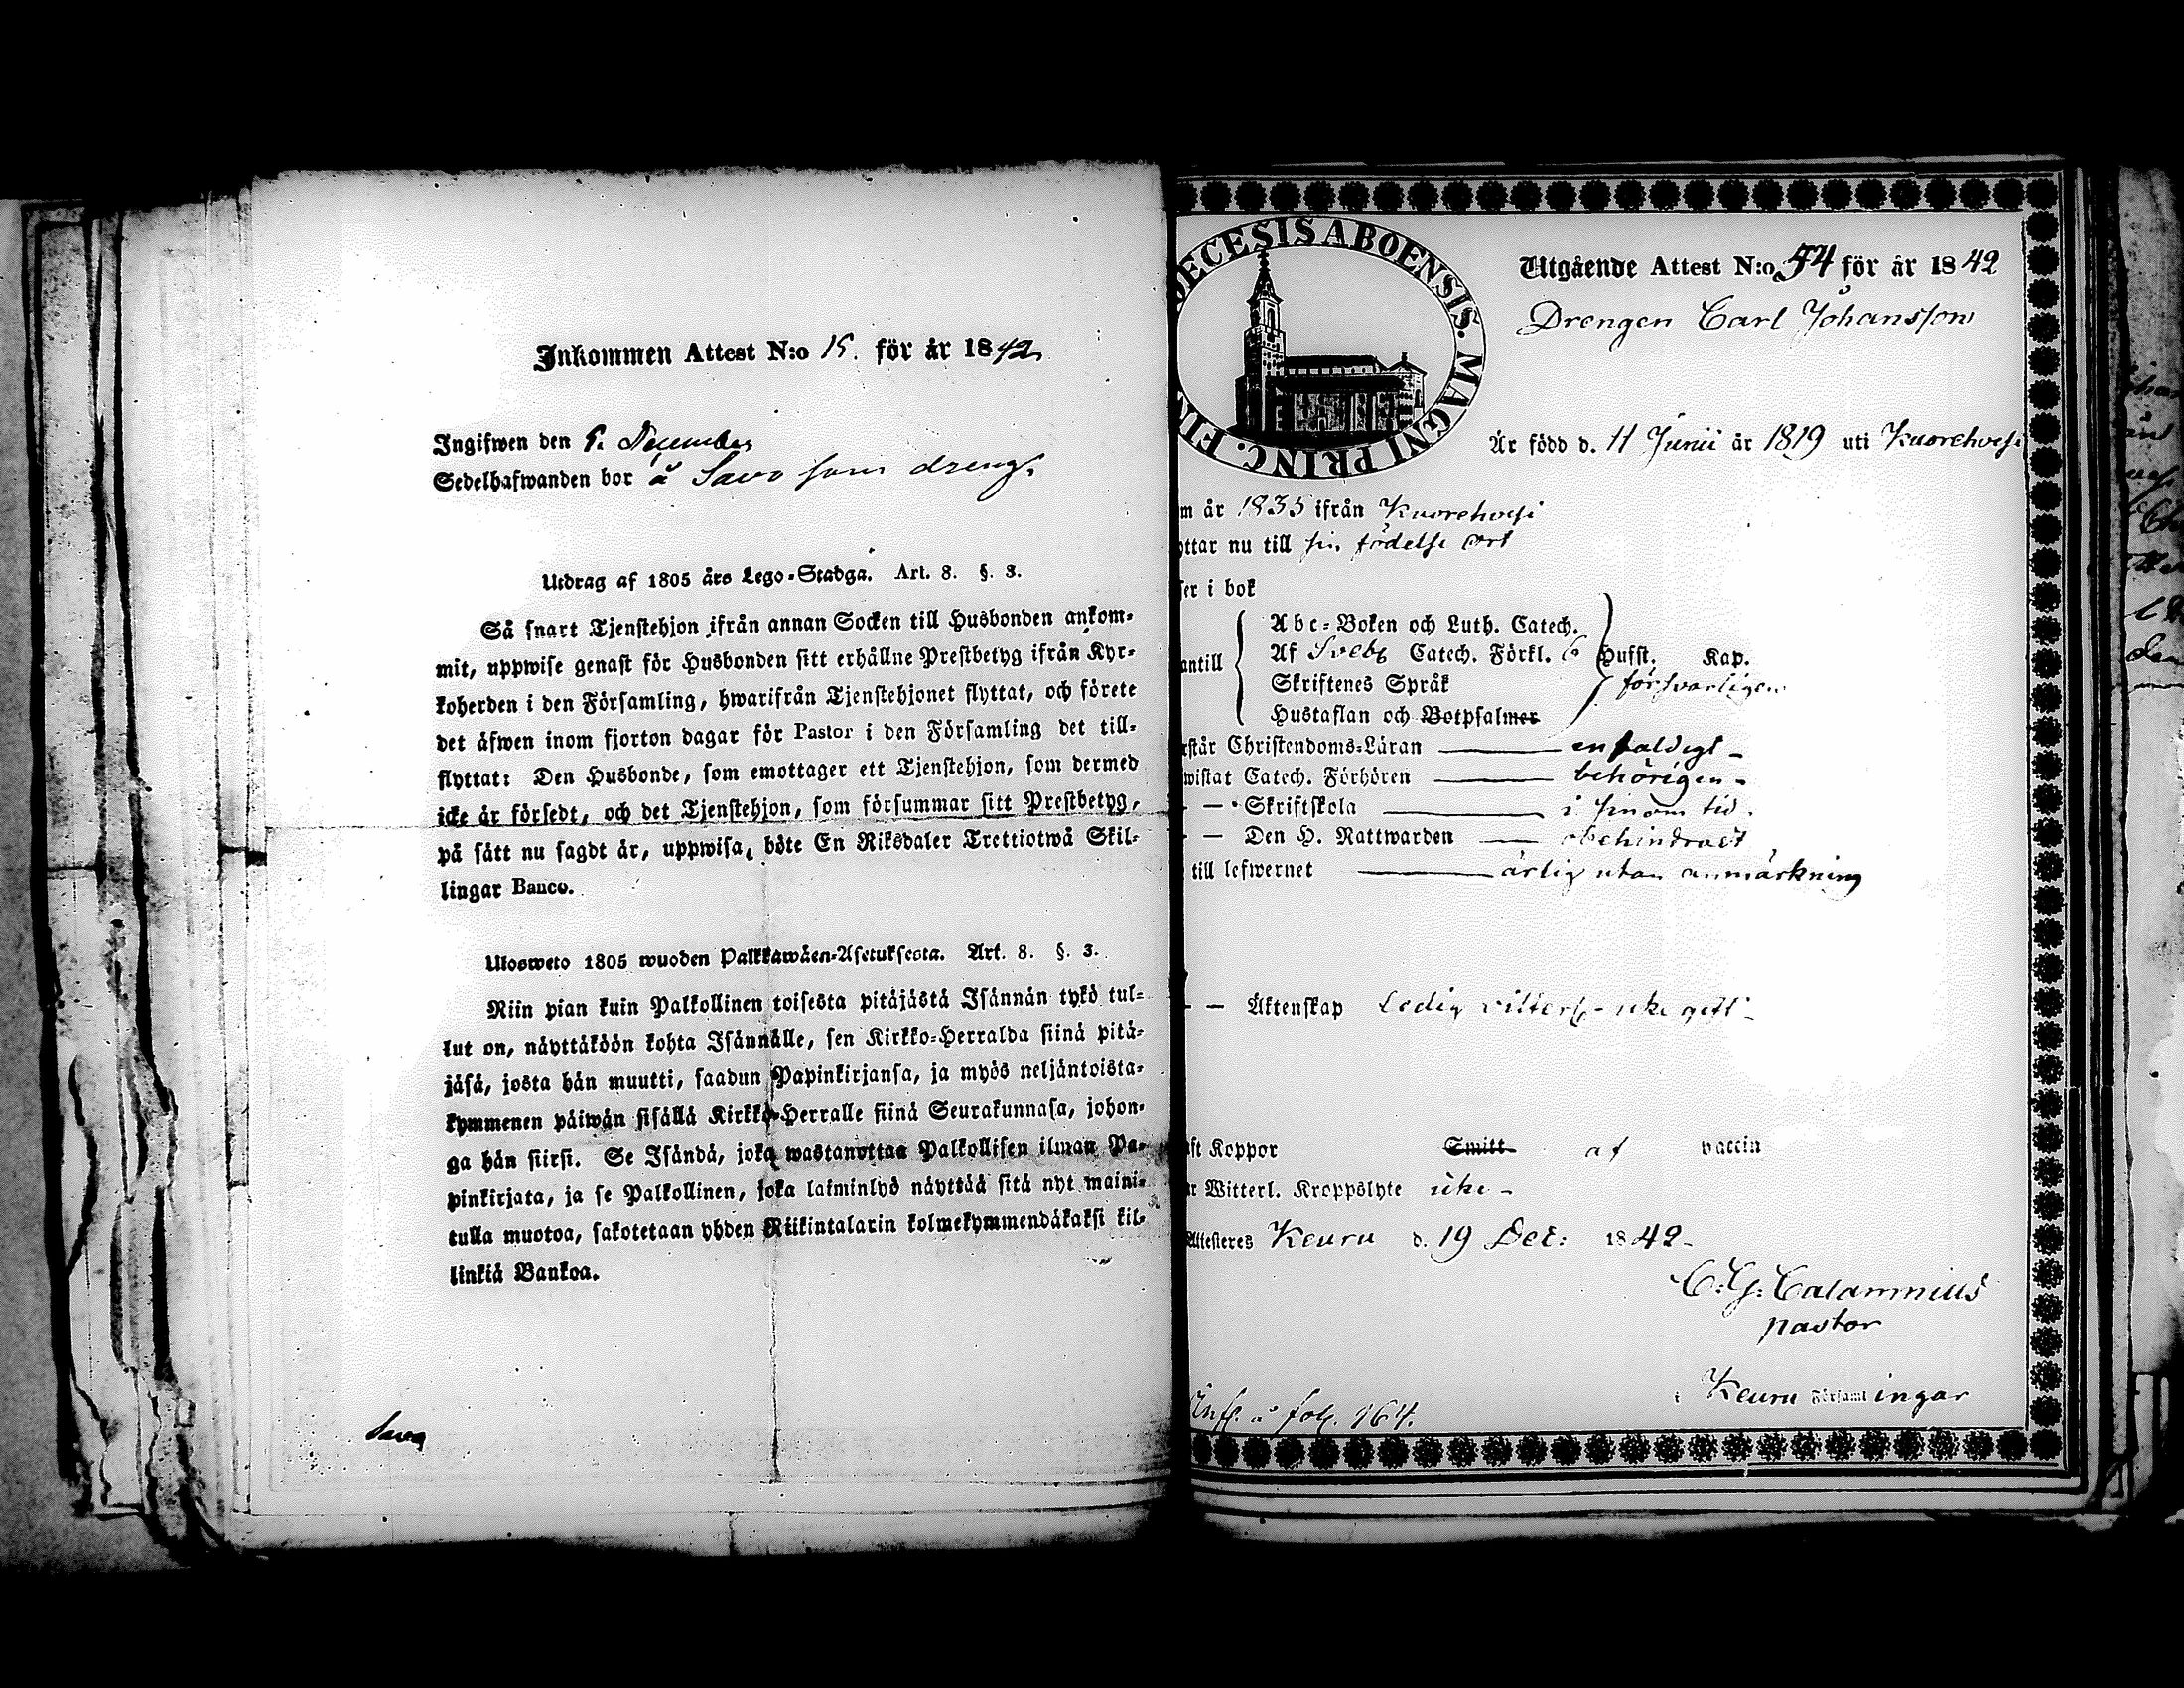 Inkommen Attest N:o 15. för år 1842
Ingifwen den 5. December
Sedelhafwanden bor å Savo som dreng.
Utdrag af 1805 års Lego-Stadga. Art. 8. §. 3.
Så snart Tjenstehjon ifrån annan Socken till Husbonden ankom-
mit, uppwise genast för Husbonden sitt erhållne Prestbetyg ifrån Kyr-
koherden i den Församling, hwarifrån Tjenstehjonet flyttat, och förete
det äfwen inom fjorton dagar för Pastor i den Församling det till-
flyttat: Den Husbonde, som emottager ett Tjenstehjon, som dermed
icke är försedt, och det Tjenstehjon, som försummar sitt Prestbetyg,
på sätt nu sagdt är, uppwisa, böte En Riksdaler Trettiotwå Skil-
lingar Banco.
Ulosweto 1805 wuoden Palkkawäen-Asetuksesta. Art. 8. §. 3.
Niin pian kuin Palkollinen toisesta pitäjästä Isännän tykö tul-
lut on, näyttäköön kohta Isännälle, sen Kirkko-Herralda siinä pitä-
jäsä, josta hän muutti, saadun Papinkirjansa, ja myös neljäntoista-
kymmenen päiwän sisällä Kirkko-Herralle siinä Seurakunnasa, johon-
ga hän siirsi. Se Isändä, joka wastanottaa Palkollisen ilman Pa-
pinkirjata, ja se Palkollinen, joka laiminlyö näyttää sitä nyt maini-
tulla muotoa, sakotetaan yhden Riikintalarin kolmekymmendäkaksi kil-
linkiä Bankoa.
Savo
ECESIS ABOENSIS. MAGNI PRINC. FIN
Utgående Attest N:o 54 för år 1842
Drengen Carl Johansson
Är född d. 11 Junii år 1819 uti Kuorehvesi
m år 1835 ifrån Kuorehvesi
ttar nu till sin födelse ort
ser i bok
antill
Abc-Boken och Luth. Catech.
Af Sveb. Catech. Förkl. 6 Hufst. Kap.
Skriftenes Språk försvarligen
Hustaflan och Botpsalmer
rstår Christendoms-Läran enfaldigt
wistat Catech. Förhören behörigen
— — Skriftskola i sinom tid.
— — Den H. Nattwarden obehindradt
till lefwernet ärlig utan anmärkning
— — Äktenskap Ledig vitterl. icke gift
ft Koppor Smitt af vaccin
r Witterl. Kroppslyte icke
Attesteres Keuru d. 19 Dec: 1842
C: G: Calamnius
pastor
i Keuru Församlingar
Anf. å fol. 164.